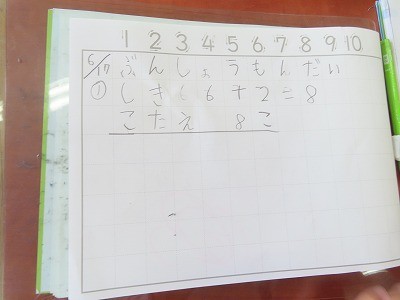 1 2 3 4 5 6 7 8 9 10
6/17 ぶんしょうもんだい
① しき 6+2=8
こたえ 8こ